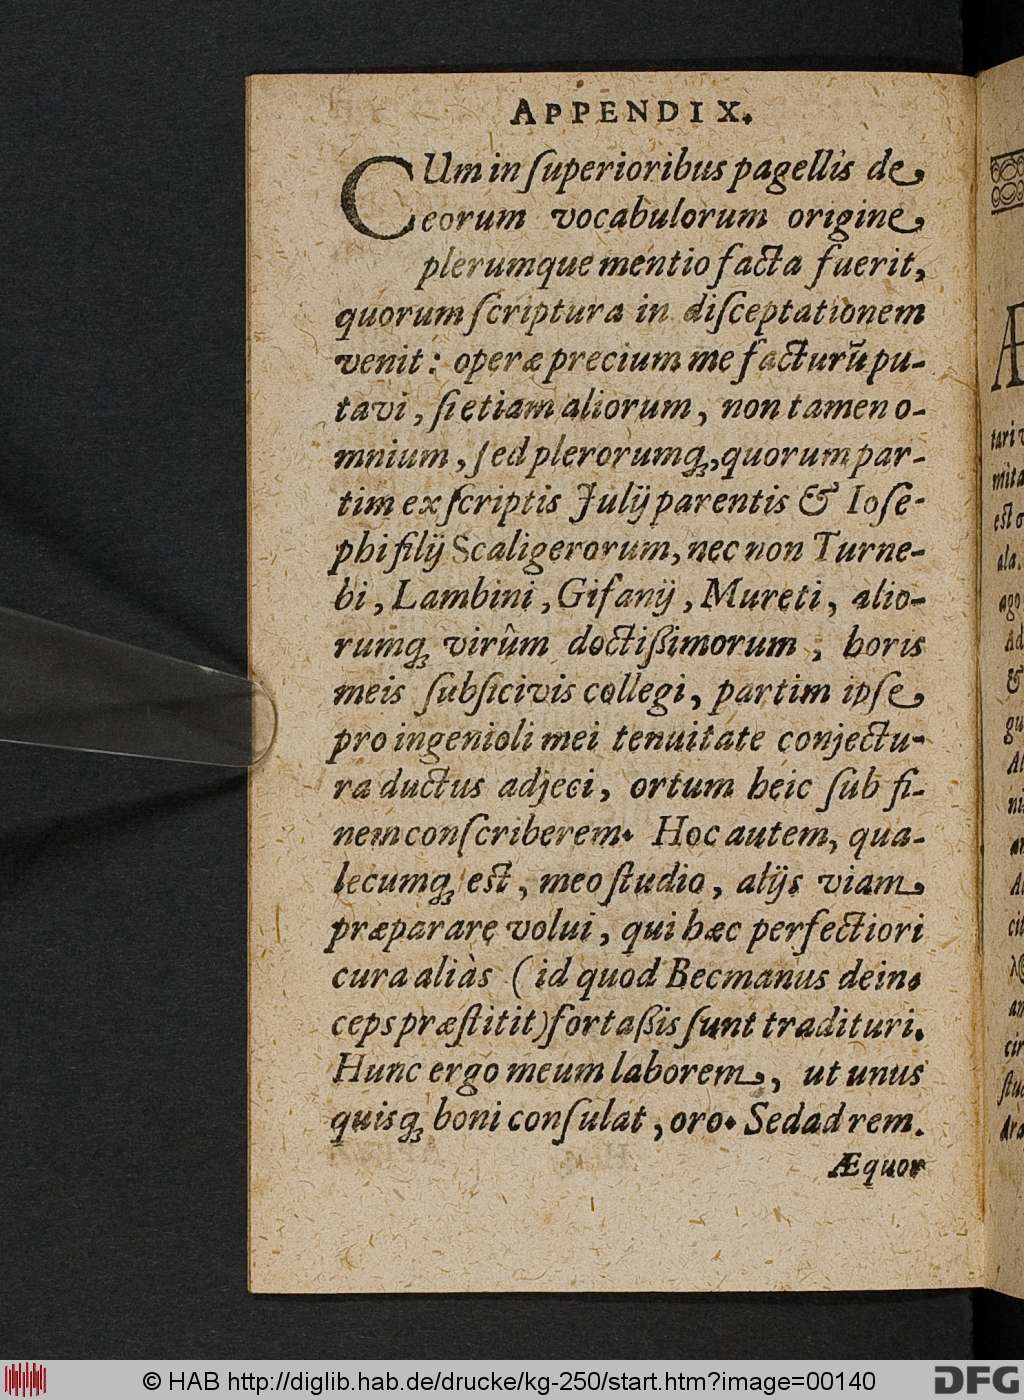 APPENDIX.
CUm in ſuperioribus pagellis de
eorum vocabulorum origine
plerumque mentio facta fuerit,
quorum ſcriptura in diſceptationem
venit: operæ precium me facturū pu-
tavi, ſi etiam aliorum, non tamen o-
mnium, ſed plerorumq́;, quorum par-
tim ex ſcriptis Julij parentis & Ioſe-
phi filij Scaligerorum, nec non Turne-
bi, Lambini, Gifanij, Mureti, alio-
rumq́; virûm doctißimorum, horis
meis ſubſicivis collegi, partim ipſe
pro ingenioli mei tenuitate conjectu-
ra ductus adjeci, ortum heic ſub fi-
nem conſcriberem. Hoc autem, qua-
lecumq́; est, meo ſtudio, alijs viam
præparare volui, qui hæc perfectiori
cura aliàs (id quod Becmanus dein-
ceps præſtitit) fortaßis ſunt tradituri.
Hunc ergo meum laborem, ut unus
quisq́; boni conſulat, oro. Sed ad rem.
Æquor
Æ
tari
mita
est
ala.
ago
Ad
&
gu
ni
cit
cir
ſtu
dra
© HAB http://diglib.hab.de/drucke/kg-250/start.htm?image=00140
DFG